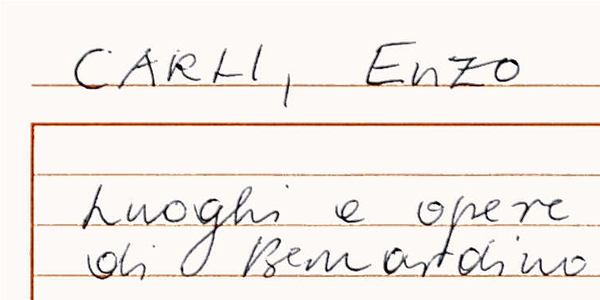 CARLI, Enzo
Luoghi e opere
di Bernardino